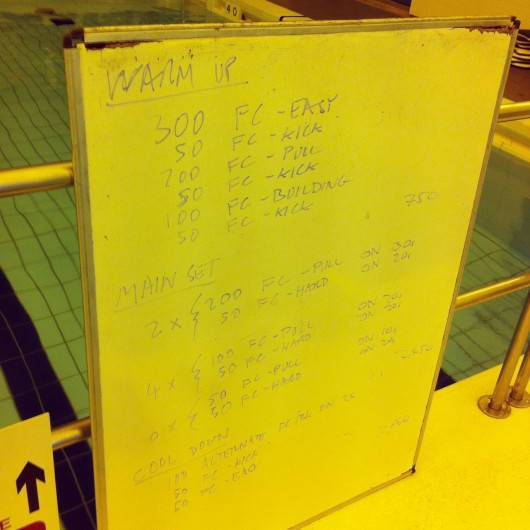 40
WARM UP
300 FC - EASY
50 FC - KICK
200 FC - PULL
50 FC - KICK
100 FC - BUILDING
50 FC - KICK
750
MAIN SET
2 x { 200 FC - PULL ON 30s
50 FC - HARD ON 20s
4 x { 100 FC - PULL ON 20s
50 FC - HARD ON
50 FC - PULL ON 10s
50 FC - HARD ON
COOL DOWN
100 ALTERNATE ON 25
50 FC - KICK
50 FC - EASY